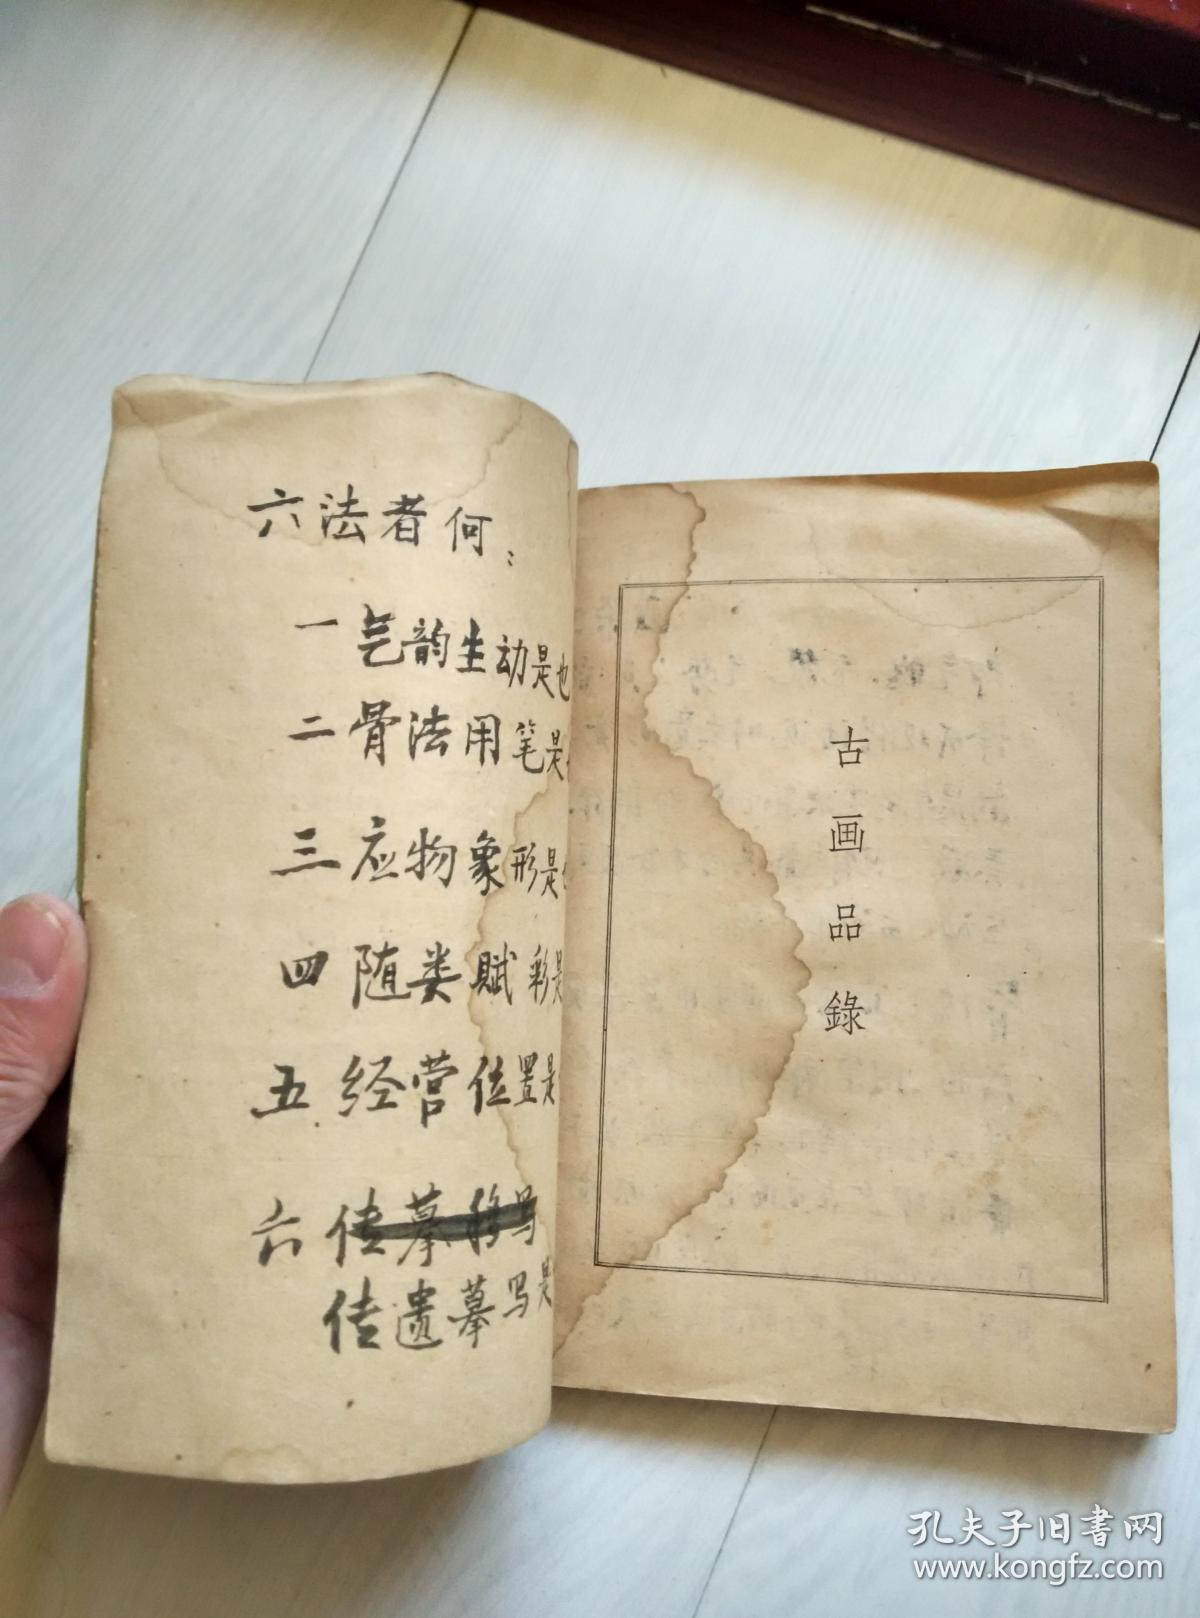 六法者何:
一 气韵生动是也
二 骨法用笔是
三 应物象形是
四 随类赋彩是
五 经营位置是
六 传摹移写
传遗摹写是
古画品錄
孔夫子旧书网
www.kongfz.com